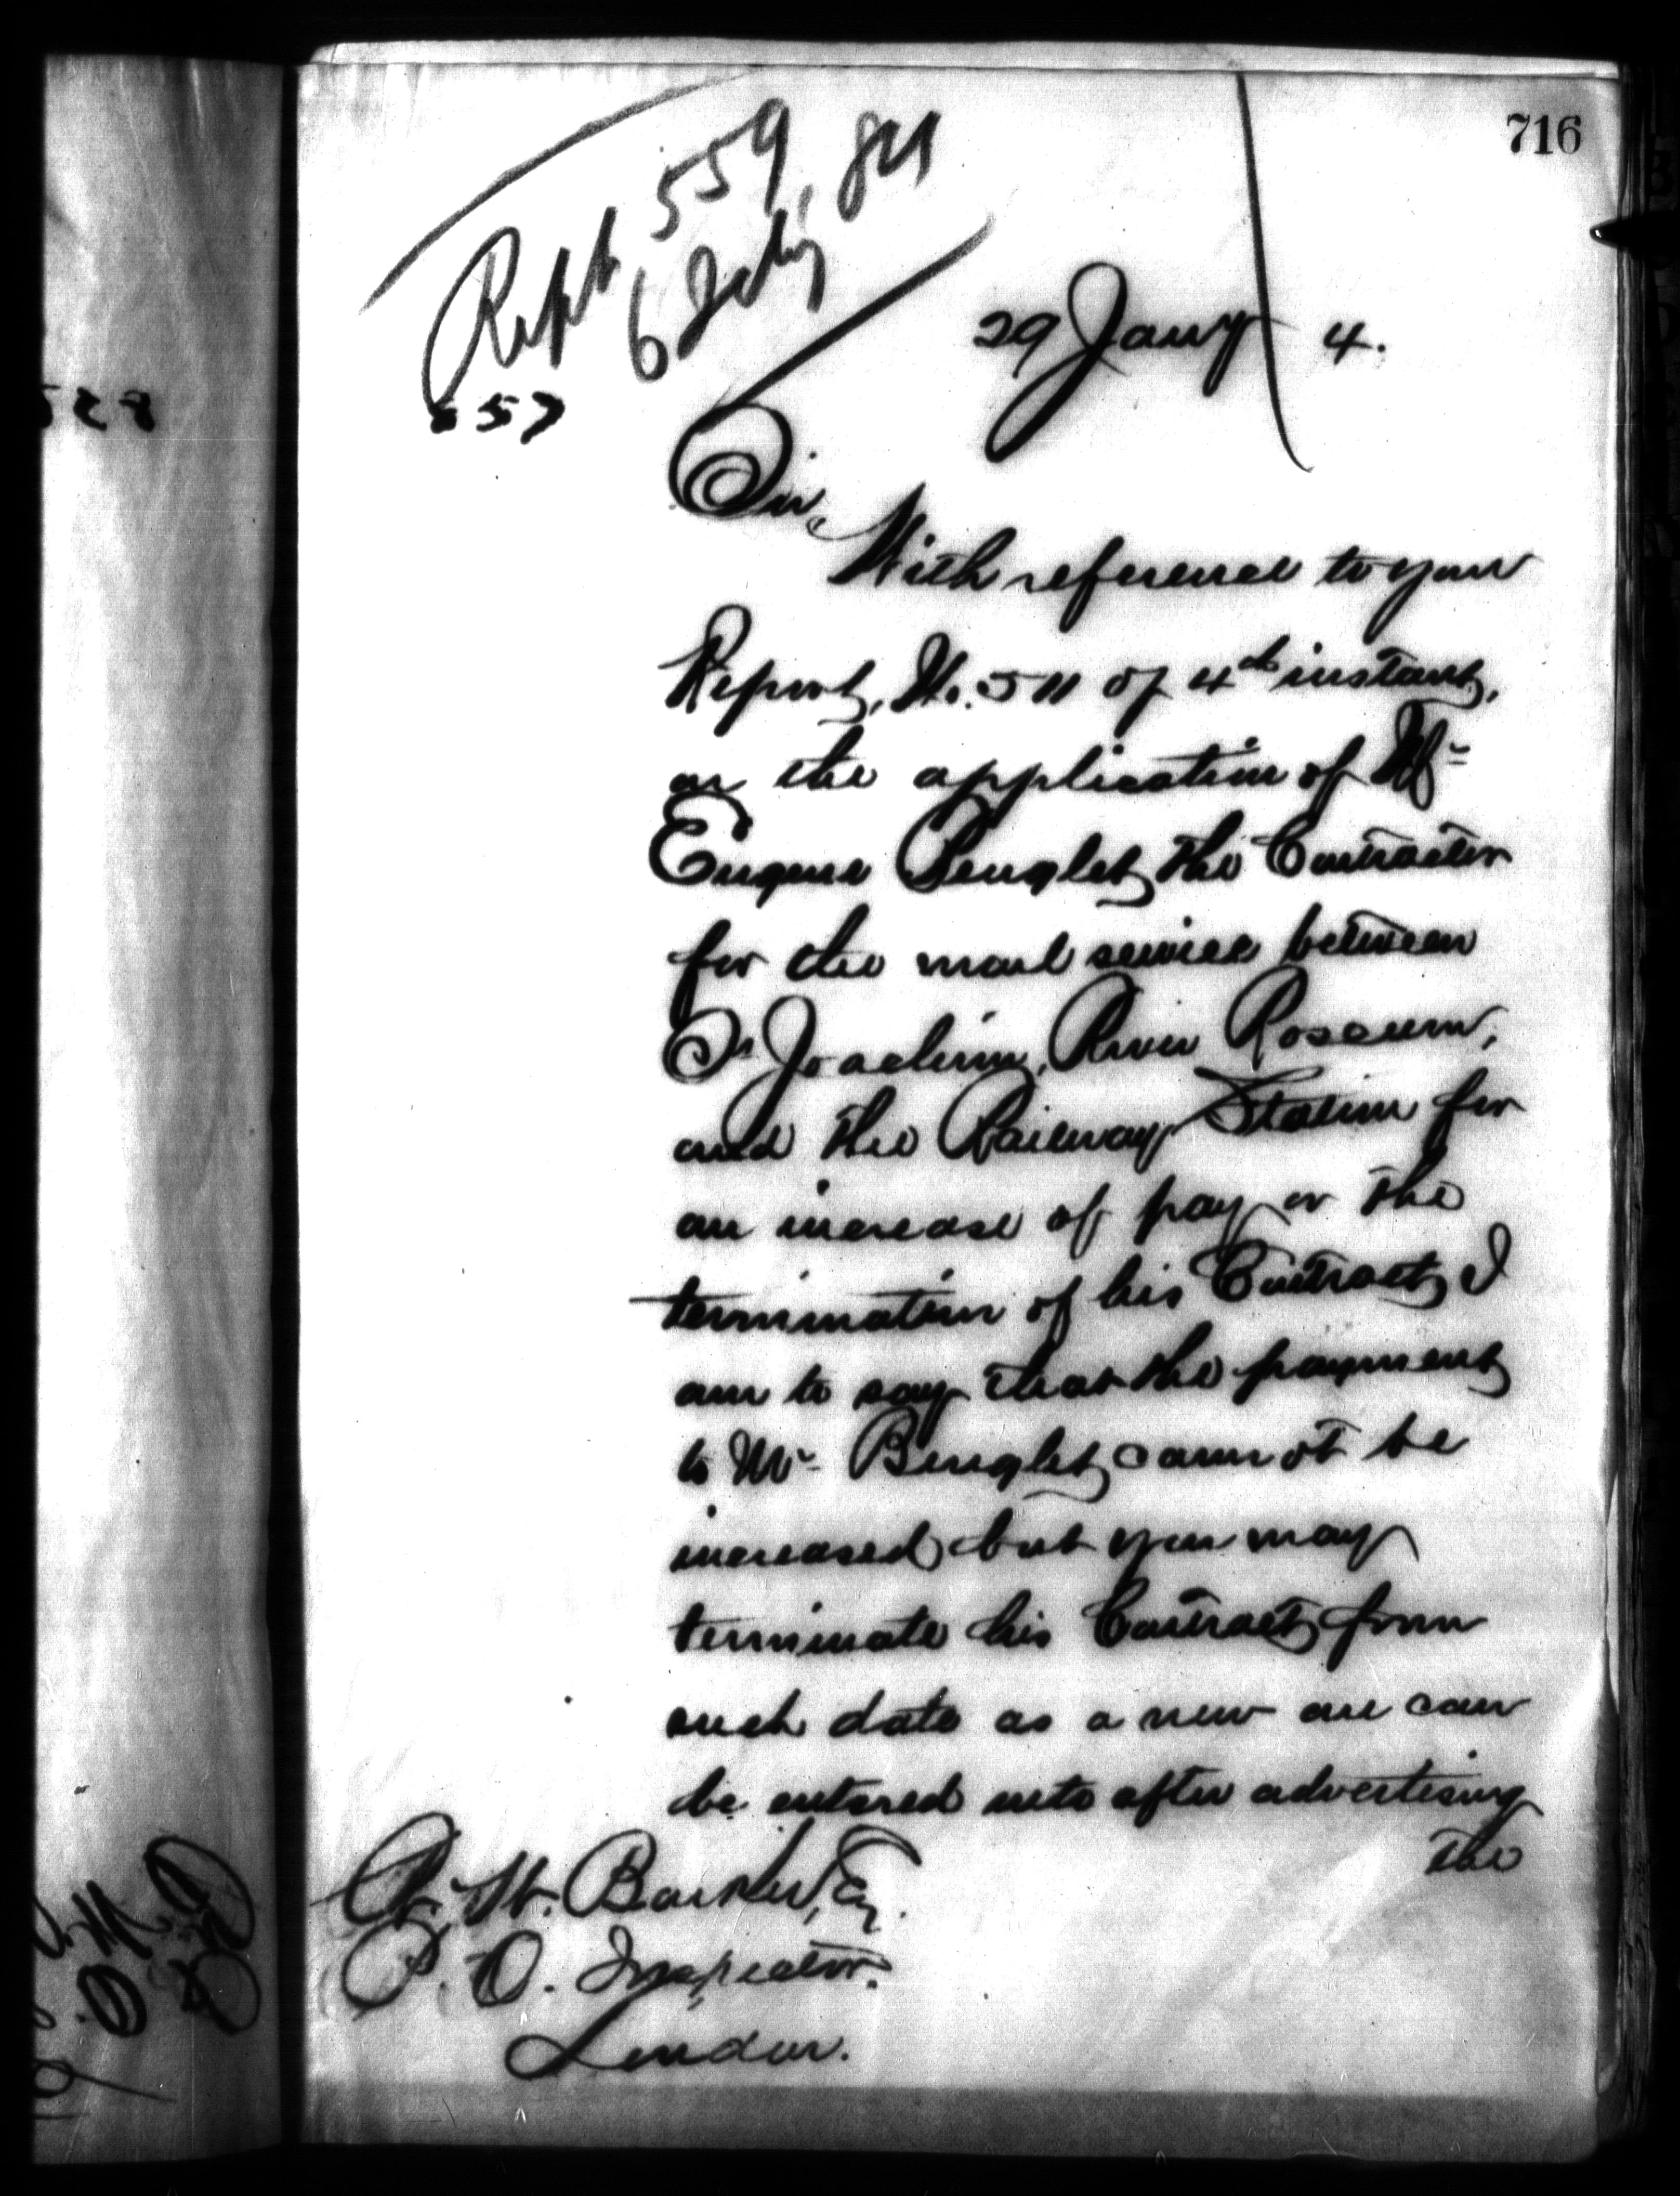 716
Rept. 559
6 Feby, 84
557
29 Jany 4.
Sir,
With reference to your
Report, No. 511 of 4th instant,
on the application of Mr
Eugene Benglet, the Contractor
for the mail service between
St Joachim, River Roscum,
and the Railway Station for
an increase of pay or the
termination of his Contract, I
am to say that the payment
to Mr Benglet cannot be
increased, but you may
terminate his Contract from
such date as a new one can
be entered into after advertising
the
R. W. Barker, Esq.
P. O. Inspector.
London.